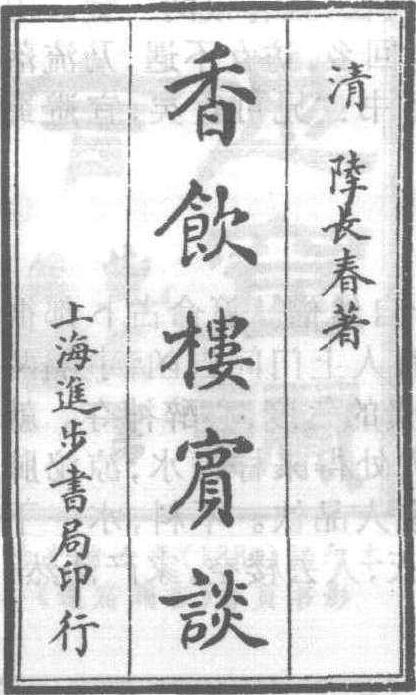 清 陸長春著
香飲樓賓談
上海進步書局印行